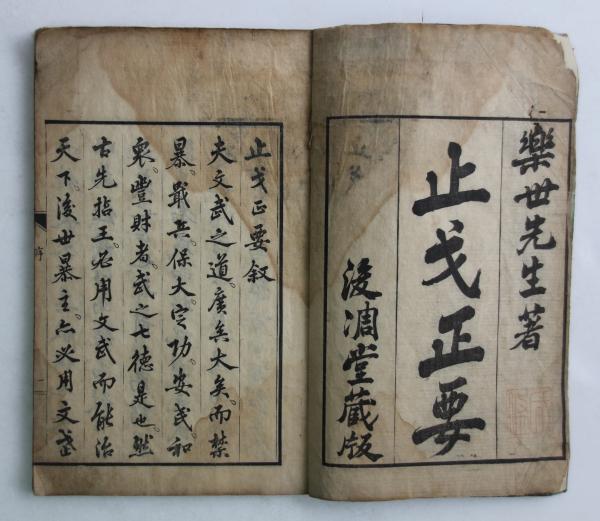 樂世先生著
止戈正要
後凋堂藏版
止戈正要叙
夫文武之道。廣矣大矣。而禁
暴。戢兵。保大。定功。安民。和
衆。豐財者。武之七德是也。然
古先哲王。必用文武而能治
天下。後世暴主。亦必用文武
序
一